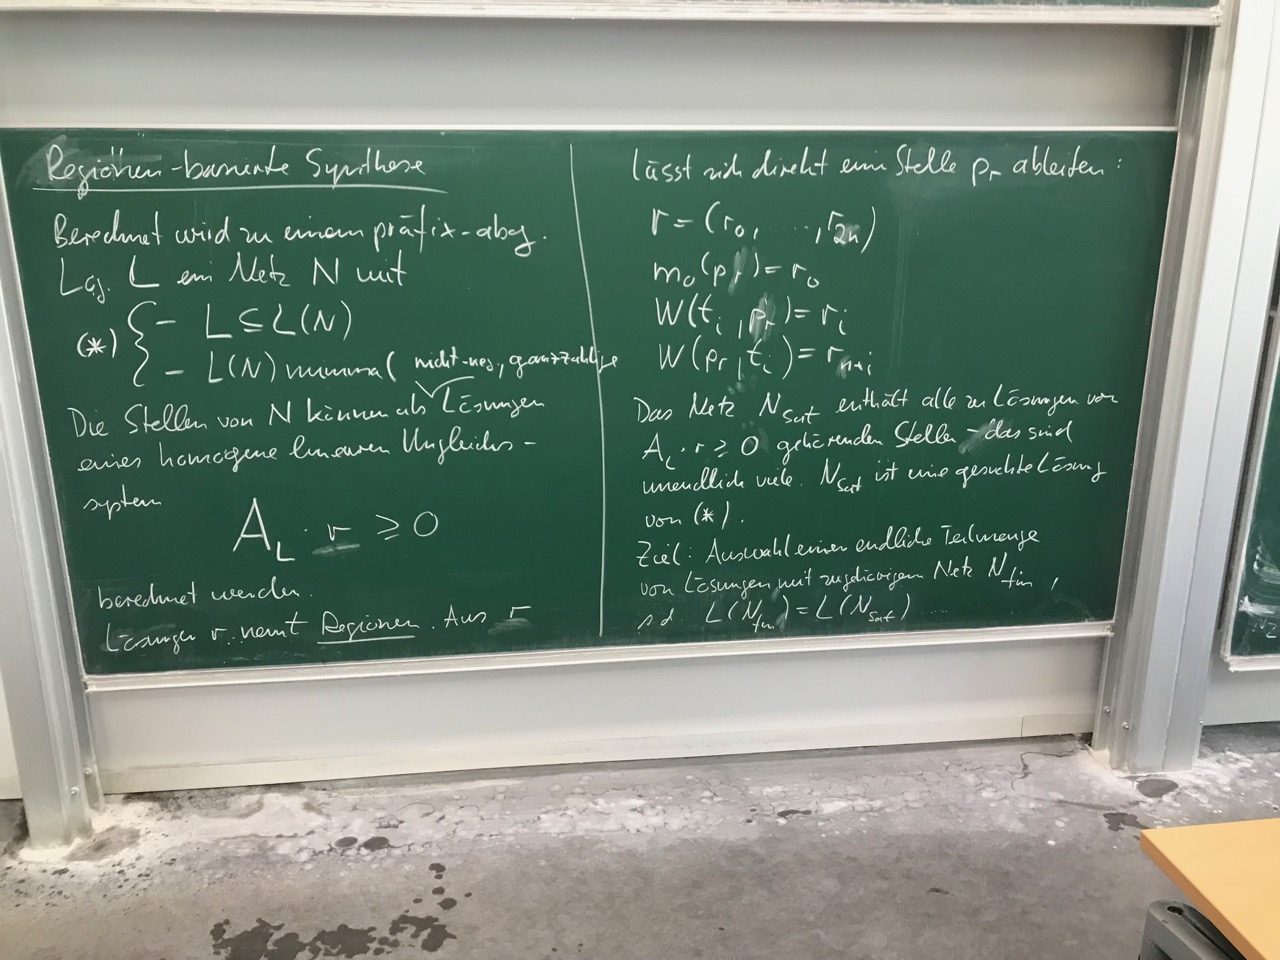 Regionen-basierte Synthese
Berechnet wird zu einem präfix-abg.
Lg. L ein Netz N mit
(*) { - L ⊆ L(N)
- L(N) minimal
nicht-neg., ganzzahlige
Die Stellen von N können als Lösungen
eines homogene linearen Ungleichs-
system
A_L · r ≥ 0
berechnet werden.
Lösungen r nennt Regionen. Aus r
lässt sich direkt ein Stelle p_r ableiten:
r = (r_0, ..., r_2n)
m_0(p_r) = r_0
W(t_i, p_r) = r_i
W(p_r, t_i) = r_n+i
Das Netz N_sat enthält alle zu Lösungen von
A_L · r ≥ 0 gehörenden Stellen - das sind
unendlich viele. N_sat ist eine gesuchte Lösung
von (*).
Ziel: Auswahl einer endliche Teilmenge
von Lösungen mit zugehörigem Netz N_fin,
s.d. L(N_fin) = L(N_sat)